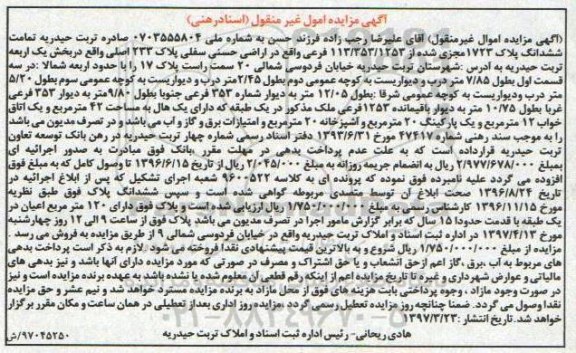 آگهی مزایده اموال غیر منقول (اسنادرهنی)
(آگهی مزایده اموال غیرمنقول) آقای علیرضا رجب زاده فرزند حسن به شماره ملی ۰۷۰۳۵۵۵۸۰۴ صادره تربت حیدریه تمامت
ششدانگ پلاک ۱۷۲۳ مجزی شده از ۱۱۳/۳۵۳/۱۲۵۳ فرعی واقع در اراضی حسنی سفلی پلاک ۲۳۳ اصلی واقع دربخش یک اربعه
تربت حیدریه به آدرس :شهرستان تربت حیدریه خیابان فردوسی شمالی ۲۰ سمت راست پلاک ۱۷ را با حدود اربعه شمالا :در سه
قسمت اول بطول ۷/۸۵ متر درب و دیواریست به کوچه عمومی دوم بطول ۲/۴۵متر درب و دیواریست به کوچه عمومی سوم بطول ۵/۲۰
متر درب ودیواریست به کوچه عمومی شرقا :بطول ۱۲/۰۵ متر به دیوار شماره ۳۵۳ فرعی جنوبا بطول ۹/۸۰متر به دیوار ۳۵۳ فرعی
غربا بطول ۱۰/۷۵ متر به دیوار باقیمانده ۱۲۵۳فرعی ملک مذکور در یک طبقه که دارای یک هال به مساحت ۴۲ مترمربع و یک اتاق
خواب ۱۲ مترمربع و یک پارکینگ ۲۰ مترمربع و آشپزخانه ۲۰ مترمربع و امتیازات برق و گاز و آب می باشد و در تصرف مدیون می باشد
را به موجب سند رهنی شماره ۴۷۴۱۷ مورخ ۱۳۹۳/۶/۳۱ دفتر اسناد رسمی شماره چهار تربت حیدریه در رهن بانک توسعه تعاون
تربت حیدریه قرارداده است که به علت عدم پرداخت بدهی در مهلت مقرر ،بانک فوق مبادرت به صدور اجرائیه ای
بمبلغ ۲/۹۷۷/۶۷۸/۰۰۰ ریال به انضمام جریمه روزانه به مبلغ ۲/۰۴۵/۰۰۰ ریال از تاریخ ۱۳۹۶/۶/۱۵ تا وصول کامل که به مبلغ فوق
افزوده می گردد علیه نامبرده فوق نموده که پرونده ای به کلاسه ۹۶۰۰۵۲۲ شعبه اجرای تشکیل که پس از ابلاغ اجرائیه در
تاریخ ۱۳۹۶/۸/۲۳ صحت ابلاغ آن توسط متصدی مربوطه گواهی شده است و سپس ششدانگ پلاک فوق طبق نظریه
مورخ ۱۳۹۶/۱۱/۱۵ کارشناس رسمی به مبلغ ۱/۷۵۰/۰۰۰/۰۰۰ ریال ارزیابی شده است و پلاک فوق دارای ۱۲۰ متر مربع اعیان در
یک طبقه با قدمت حدودا ۱۵ سال که برابر گزارش مامور اجرا در تصرف مدیون می باشد پلاک فوق از ساعت ۹ الی ۱۲ روز چهارشنبه
مورخ ۱۳۹۷/۴/۱۳ در اداره ثبت اسناد و املاک تربت حیدریه واقع در خیابان فردوسی شمالی ۹ از طریق مزایده به فروش می رسد .
مزایده از مبلغ ۱/۷۵۰/۰۰۰/۰۰۰ ریال شروع و به بالاترین قیمت پیشنهادی نقدا فروخته می شود .لازم به ذکر است پرداخت بدهی
های مربوط به آب ،برق ،گاز اعم ازحق انشعاب و یا حق اشتراک و مصرف در صورتی که مورد مزایده دارای آنها باشد و نیز بدهی های
مالیاتی و عوارض شهرداری و غیره تا تاریخ مزایده اعم از اینکه رقم قطعی آن معلوم شده یا نشده باشد به عهده برنده مزایده است و نیز
در صورت وجود مازاد ، وجوه پرداختی بابت هزینه های فوق از محل مازاد به برنده مزایده مسترد خواهد شد و نیم عشر و حق مزایده
نقدا وصول می گردد. ضمنا چنانچه روز مزایده تعطیل رسمی گردد ،مزایده روز اداری بعداز تعطیلی در همان ساعت و مکان مقرر برگزار
خواهد شد. تاریخ انتشار :۱۳۹۷/۳/۲۳
هادی ریحانی- رئیس اداره ثبت اسناد و املاک تربت حیدریه
۹۷۰۴۵۲۵۰/ش